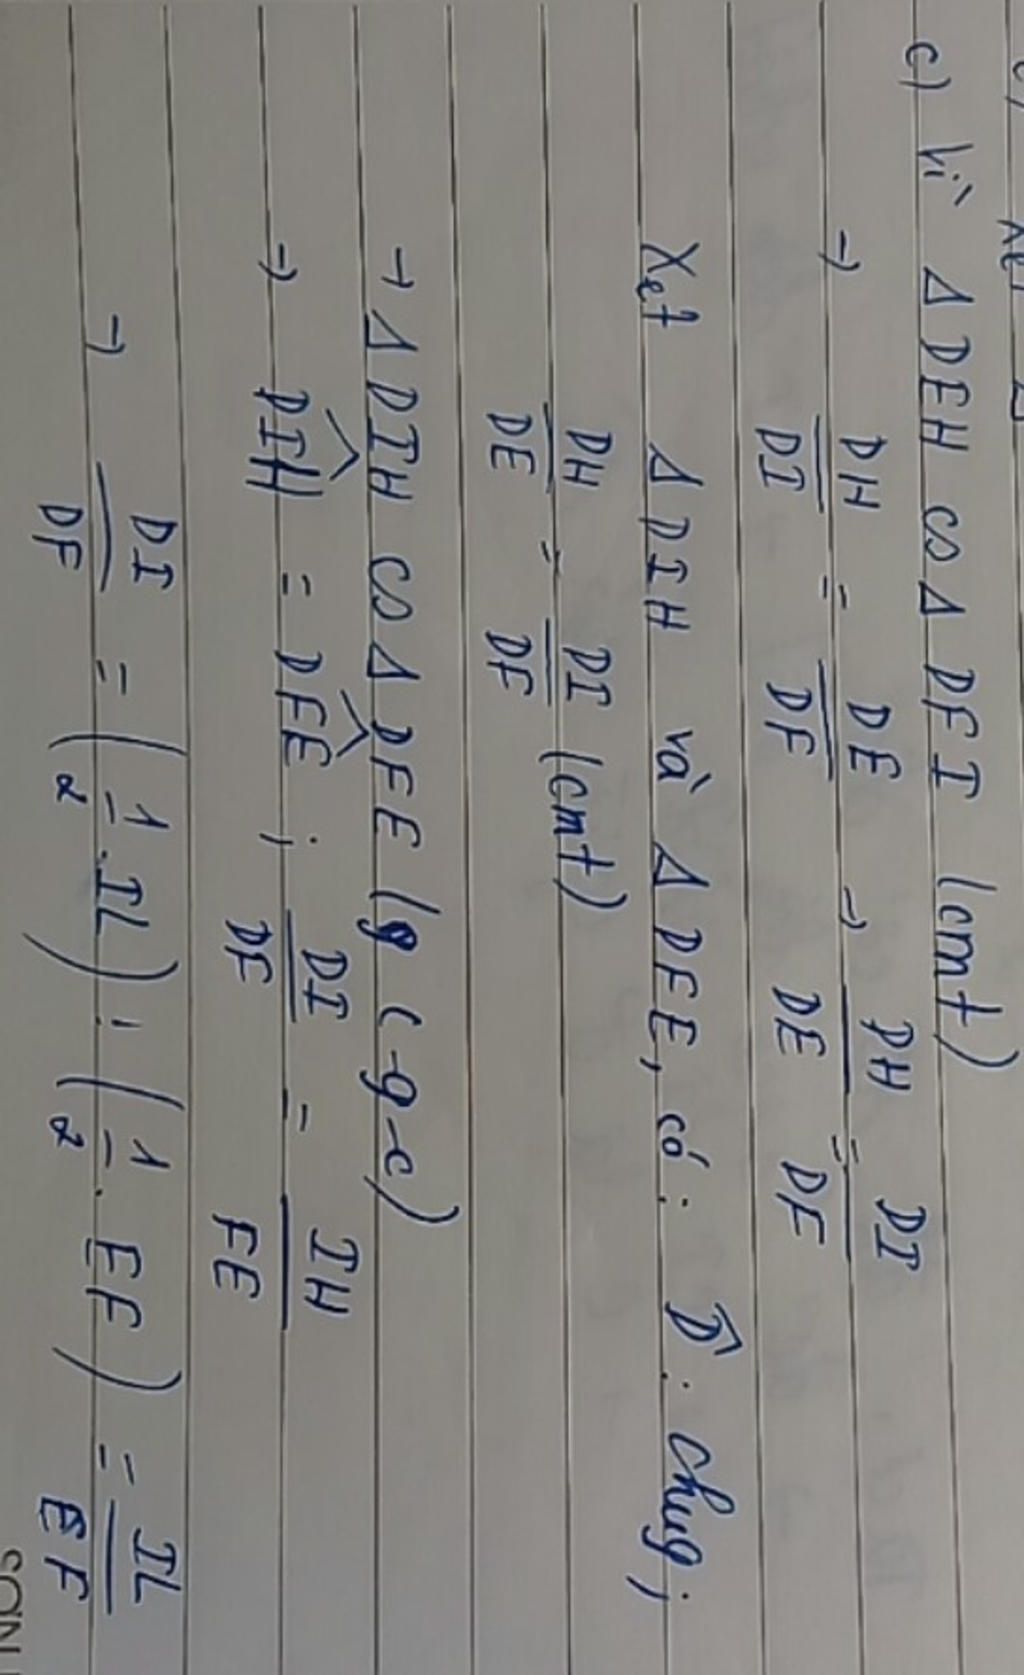 c) Vì Δ DEH ∽ Δ DFI (cmt)
→ DH/DI = DE/DF → DH/DE = DI/DF
Xét Δ DIH và Δ DFE, có: D̂: chung;
DH/DE = DI/DF (cmt)
→ Δ DIH ∽ Δ DFE (g-c-g-c)
→ DIH = DFE ; DI/DF = IH/FE
→ DI/DF = (1/2 . IL) : (1/2 . EF) = IL/EF